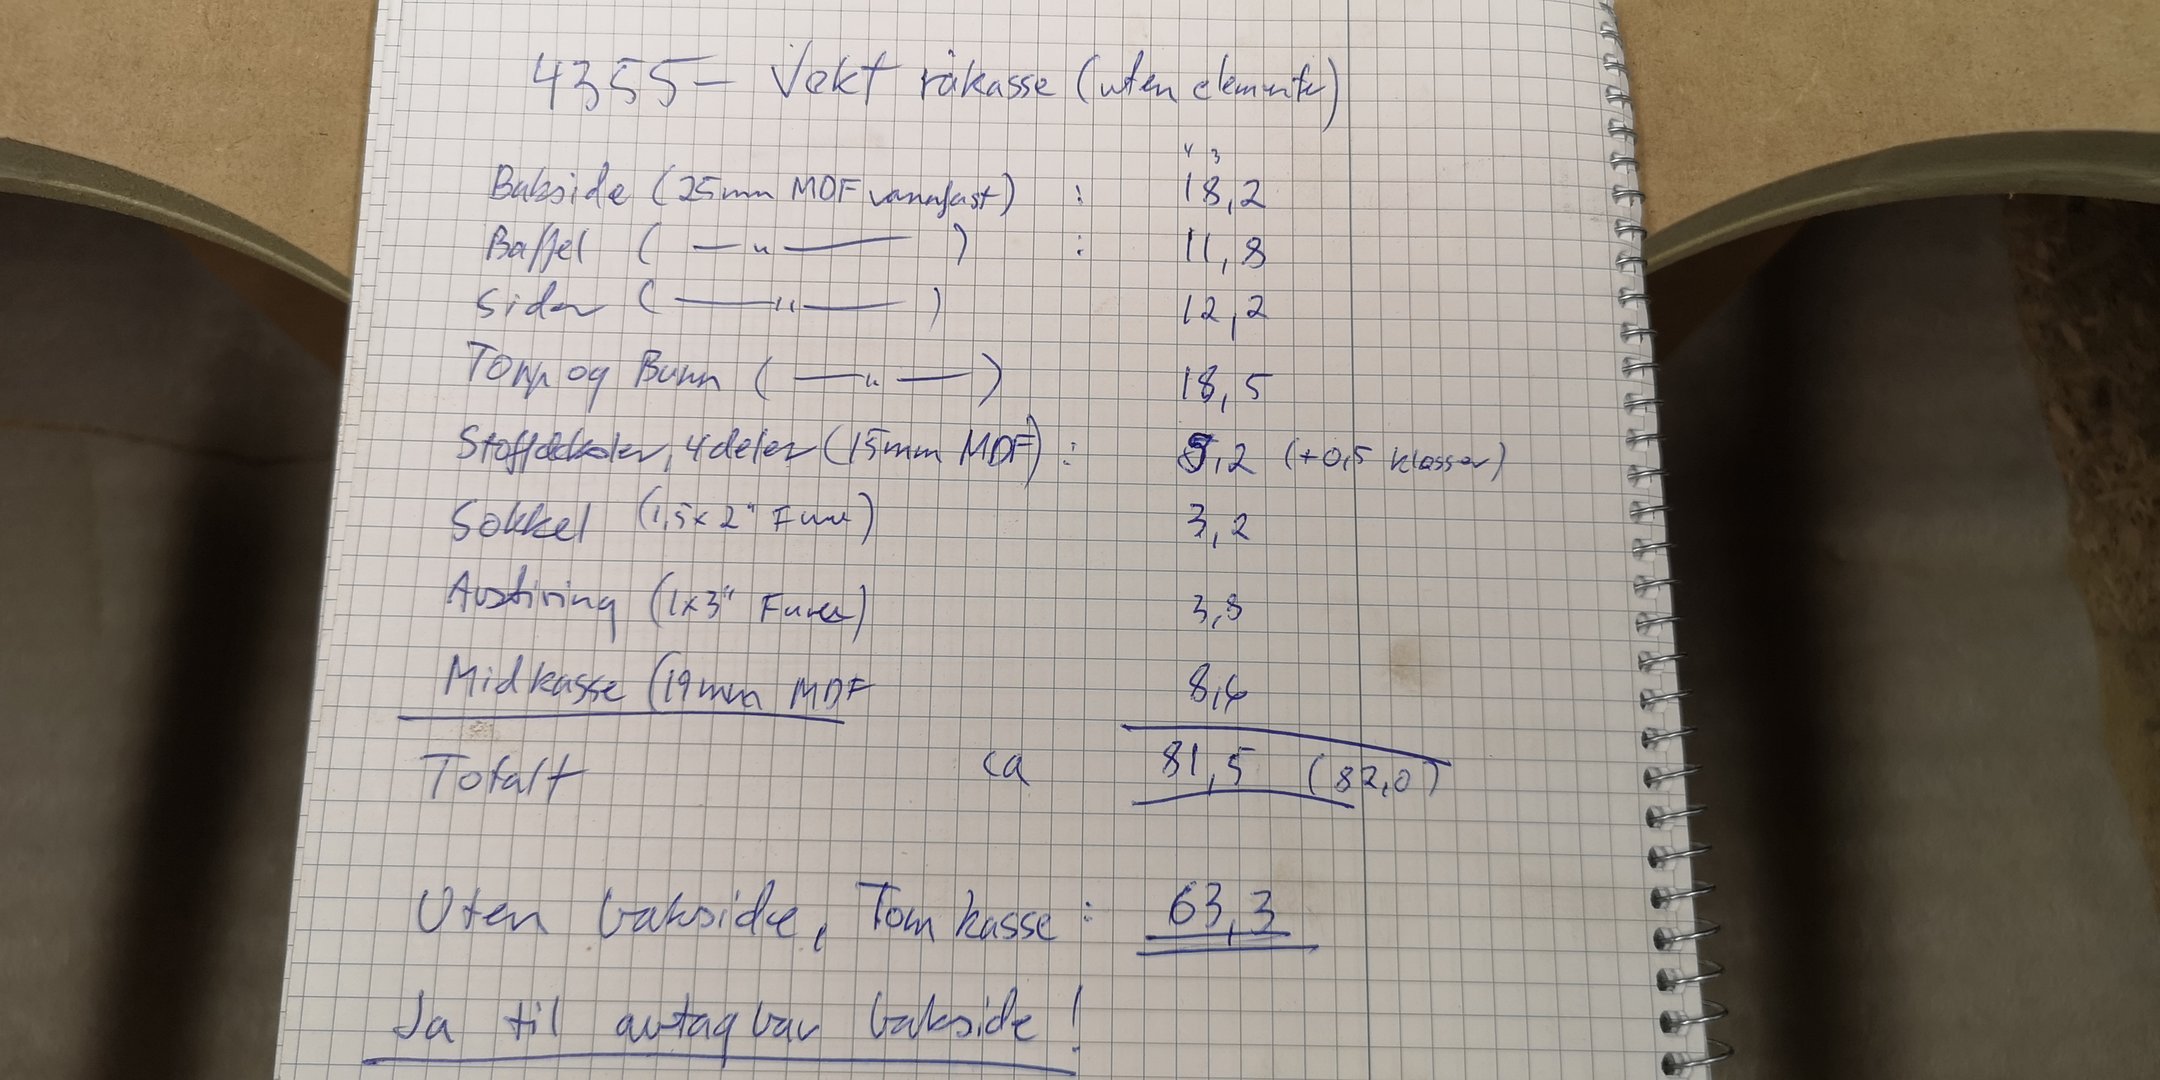 4355 – Vekt råkasse (uten elementer)
4 3
Bakside (25mm MDF vannfast) : 18,2
Baffel ( — " — ) : 11,8
Sider ( — " — ) 12,2
Topp og Bunn ( — " — ) 18,5
Stoffdeksler, 4 deler (15mm MDF) : 5,2 (+0,5 klosser)
Sokkel (1,5x2" Furu) 3,2
Avstiving (1x3" Furu) 3,8
Midkasse (19mm MDF 8,6
Totalt ca 81,5 (82,0)
Uten bakside, Tom kasse : 63,3
Ja til avtagbar bakside!